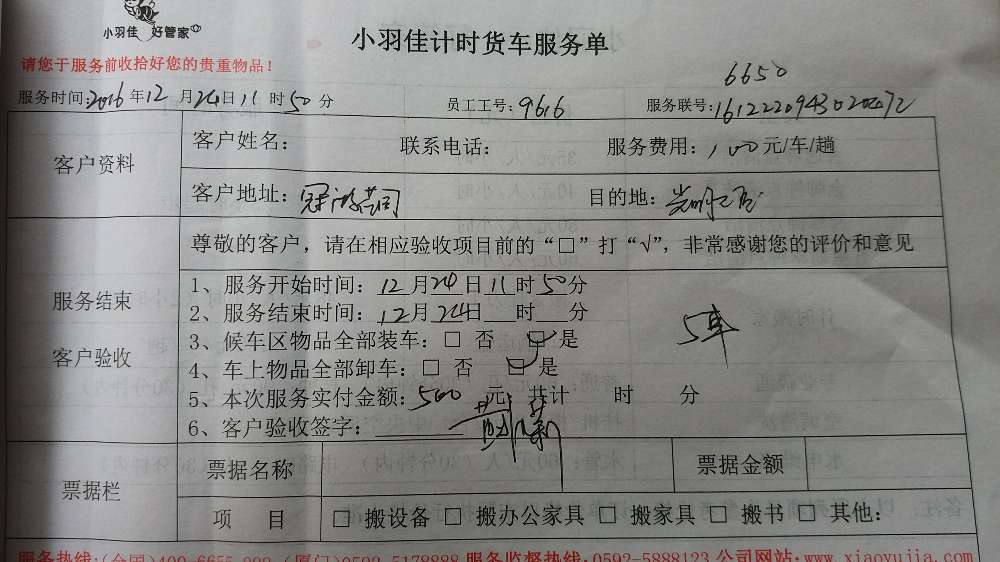 小羽佳 好管家
小羽佳计时货车服务单
请您于服务前收拾好您的贵重物品！
6650
服务时间:2016年12月24日11时50分 员工工号:9616 服务联号:
客户资料
客户姓名： 联系电话： 服务费用：100元/车/趟
客户地址： 目的地：
尊敬的客户，请在相应验收项目前的“□”打“√”，非常感谢您的评价和意见
服务结束
客户验收
1、服务开始时间：12月24日11时50分
2、服务结束时间：12月24日 时 分
3、候车区物品全部装车：□ 否 □ 是
5车
4、车上物品全部卸车：□ 否 □ 是
5、本次服务实付金额：500 元；共计 时 分
6、客户验收签字：
票据栏
票据名称 票据金额
项 目 □ 搬设备 □ 搬办公家具 □ 搬家具 □ 搬书 □ 其他：
服务热线:(全国)400-6655-000 (厦门)0592-5178888 服务监督热线:0592-5888123 公司网站:www.xiaoyujia.com